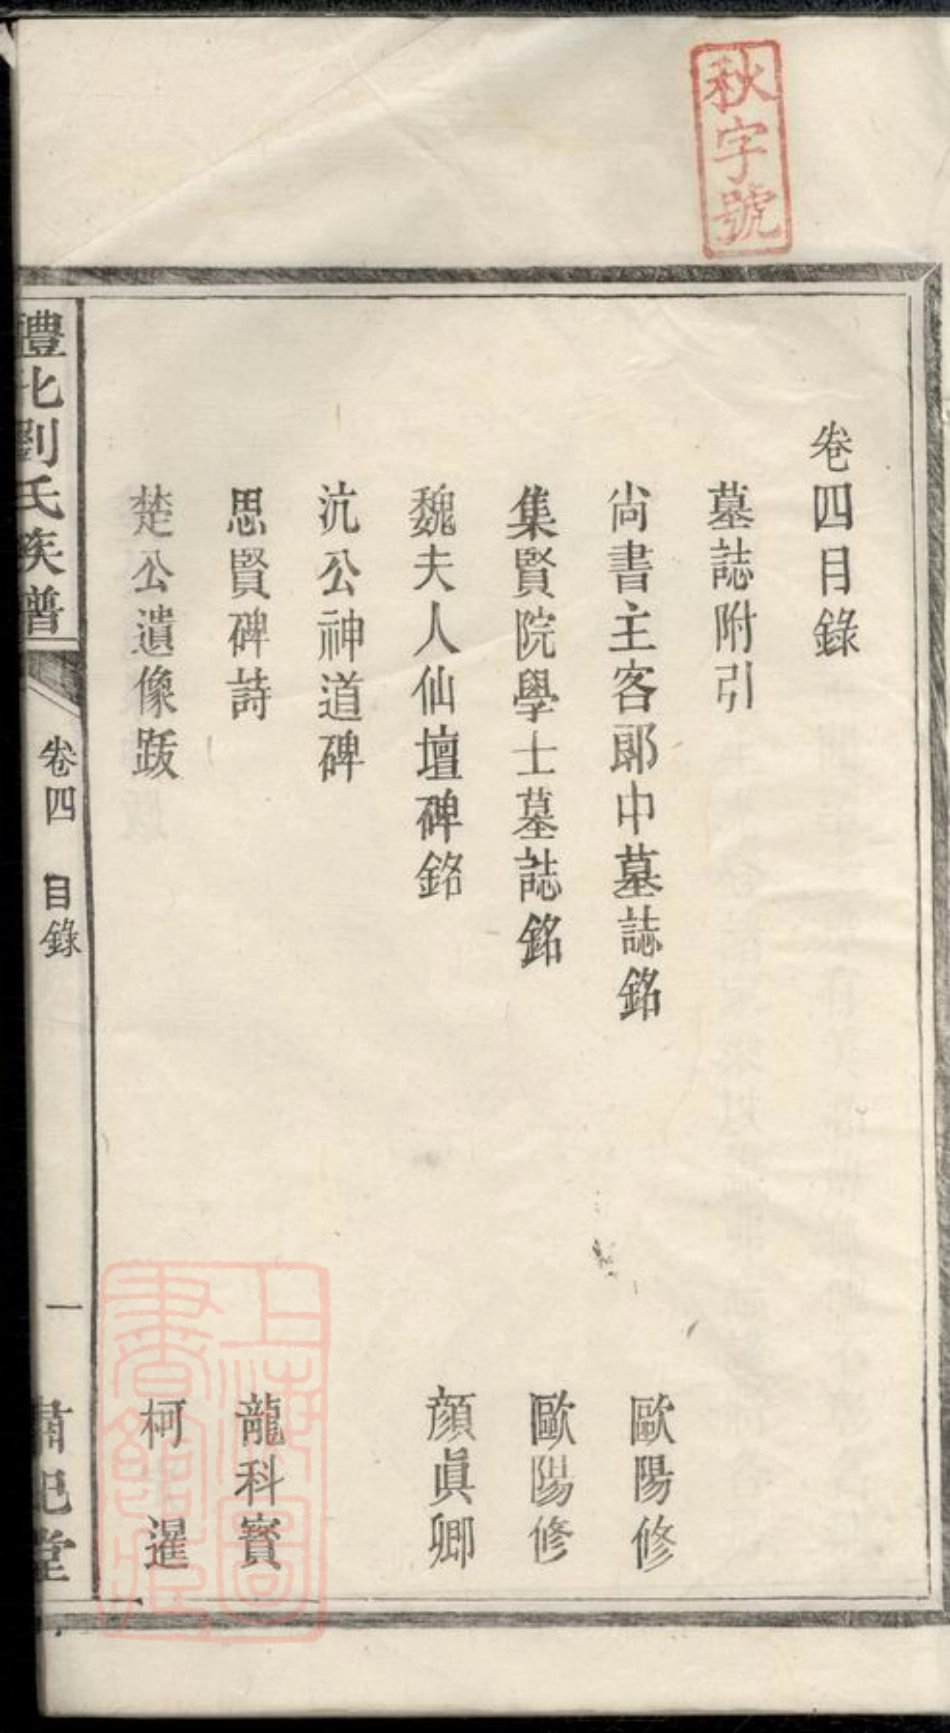 秋字號
卷四目錄
墓誌附引
尚書主客郎中墓誌銘 歐陽修
集賢院學士墓誌銘 歐陽修
魏夫人仙壇碑銘 顏眞卿
沆公神道碑
思賢碑詩 龍科寶
楚公遺像跋 柯暹
澧北劉氏族譜 卷四 目錄 一 肅祀堂
上海圖書館藏